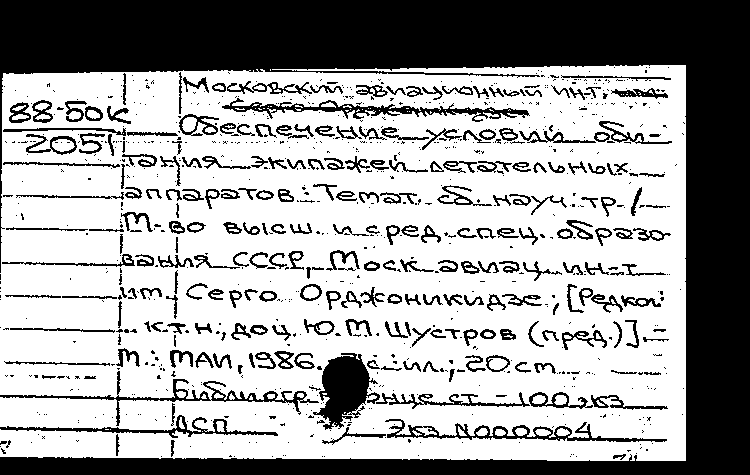 Московский авиационный ин-т,
Серго Орджоникидзе
88-50к
2051
Обеспечение условий оби-
тания экипажей летательных
аппаратов: Темат. сб. науч. тр. /
М-во высш. и сред. спец. образо-
вания СССР, Моск. авиац. ин-т
им. Серго Орджоникидзе; [Редкол.:
к.т.н., доц. Ю.М. Шустров (пред.)]. -
М.: МАИ, 1986. ил.; 20 см
Библиогр конце ст. - 100 экз
ДСП Экз N000004